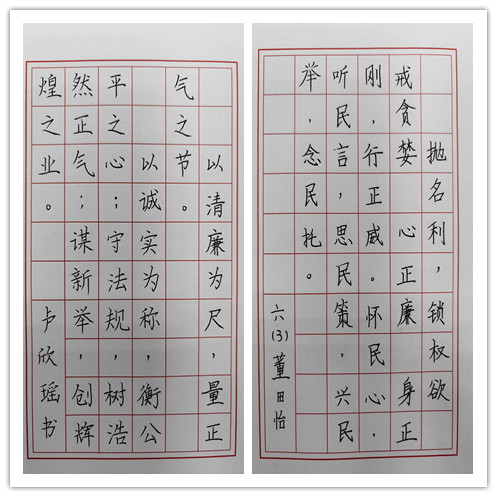 以清廉为尺，量正
气之节。
以诚实为称，衡公
平之心；守法规，树浩
然正气；谋新举，创辉
煌之业。
卢欣瑶书
抛名利，锁权欲
戒贪婪 心正廉 身正
刚，行正威。怀民心，
听民言，思民策，兴民
举，念民托。
六(3)董田怡